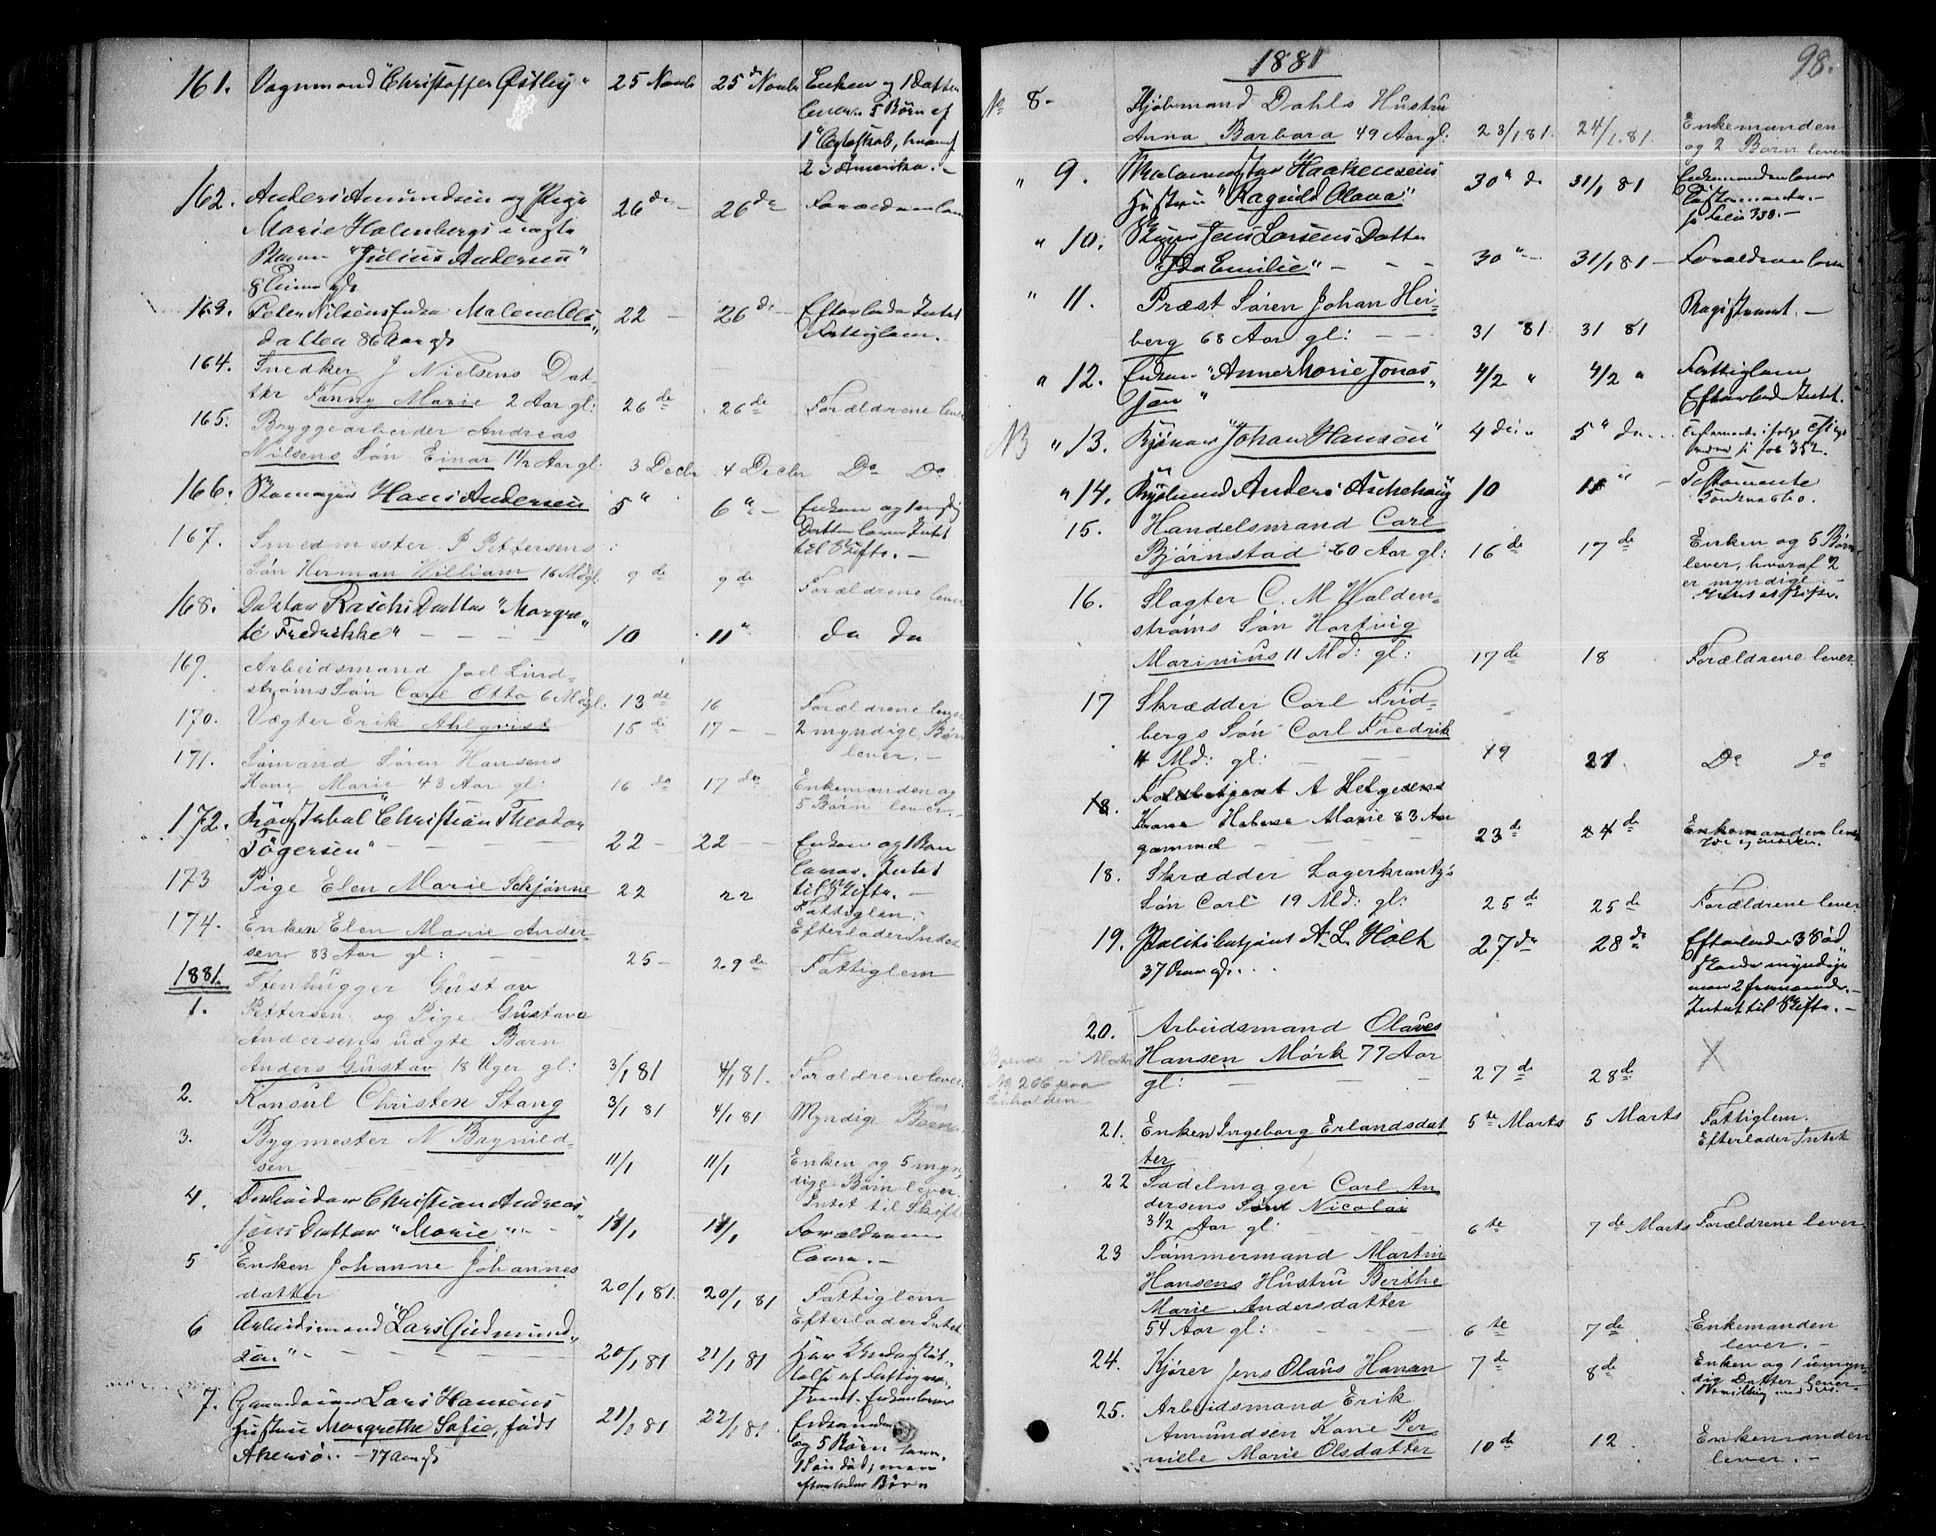 161. Vognmand "Christoffer Østby" 25 Novbr 25 de Novbr Enken og 1 Datter
lever. 5 Børn af
1 ste Ægteskab, hvoraf
2 i Amerika. -
162. Anders Amundsen og Pige 26 de - 26 de Forældrene lever
Marie Holmbergs uægte
Barn "Julius Andersen"
163. Peter Nilsens Enke Malene Ols 22 - 26 de - Efterlader Intet
datter 86 Aar gl Fattiglem.
164. Snedker J Nielsens Dat-
ter Fanny Marie 2 Aar gl: 26 de 26 de Forældrene lever
165. Bryggearbeider Andreas
Nilsens Søn Einar 1 1/2 Aar gl: 3 Decbr 4 Decbr Do Do
166. Hans Andersen 5 " 6 " - Enken og 1 myndig
Datter lever Intet
til Skifte. -
167. Smedmester P Pettersens
Søn Herman William 16 Md gl 9 de 9 de Forældrene lever
168. Doktor Raschs Datter "Margre-
te Fredrikke" - - - 10 11 " do do
169. Arbeidsmand Joel Lind-
strøms Søn Carl Otto 6 Md gl. 13 de 16 Forældrene lever
170. Vægter Erik Ahlqvist 15 de 17 - - 2 myndige Børn
lever. -
171. Sømand Søren Hansens
Kone Marie 43 Aar gl: 16 de 17 de Enkemanden og
5 Børn lever. -
172. "Christian Theodor
Tøgersen" - 22 - 22 - Enken og 1 Barn
lever. Intet
til Skifte. -
173 Pige Elen Marie Schjønne 22 22 Fattiglem.
Efterlader Intet
174. Enken Elen Marie Ander-
sen 83 Aar gl: - 25 - 29 de Fattiglem
1881. Stenhugger Gustav
1. Pettersen og Pige Gustava
Andersens uægte Barn
Anders Gustav 18 Uger gl: 3/1 81 4/1 81. Forældrene lever
2. Konsul Christen Stang 3/1 81 4/1 81 Myndige Børn
3. Bygmester N Brynild-
sen 11/1 11/1 Enken og 5 myn-
dige Børn lever.
Intet til Skifte
4. Arbeider Christian Andreas-
sens Datter "Marie" - Forældrene
lever. -
5 Enken Johanne Johannes
datter 20/1 81. 20/1 81 Fattiglem
Efterlader Intet
6 Arbeidsmand "Lars Gudmund-
sen" - 20/1 81 21/1 81 Har Understøt-
telse af Fattigvæ-
7. Lars Hansens
Hustru Margrethe Sofie, født
Akersø. - 77 Aar gl 21/1 81 22/1 81. Enkemanden
og 5 Børn lever,
1 Søn død, men
efterlader Børn
1881 98.
No 8. Kjøbmand Dahls Hustru
Anna Barbara 49 Aar gl: 23/1 81. 24/1 81. Enkemanden
og 2 Børn lever
" 9. Haakensens
Hustru "Ragnild Olava" 30 " de 31/1 81 Enkemanden lever
Testamente. -
" 10. Jens Larsens Datter
"Ida Emilie" - - - 30 " - 31/1 81 - Forældrene lever
" 11. Præst Søren Johan Hei-
berg 68 Aar gl: - - 31 81. 31 81 Registreret. -
" 12. Enken "Anne Marie Jonas-
sen" 4/2 " 4/2 " Fattiglem
Efterlader Intet.
NB " 13. Kjører "Johan Hansen" 4 de 5 " de
" 14. Kjøbmd Anders Aschehoug 10 11 " - Testamente
15. Handelsmand Carl
Bjørnstad 60 Aar gl: 16 de 17 de Enken og 5 Børn
lever, hvoraf 2
er myndige. -
16. Slagter C. M Walden-
strøms Søn Hartvig
Marinius 11 Md: gl: 17 de 18 Forældrene lever
17 Skrædder Carl Frid-
bergs Søn Carl Fredrik
4 Md: gl: - - 19 21 Do do
18. Toldbetjent A Helgesens
Kone Helene Marie 83 Aar
gammel - - 23 de 24 de Enkemanden lever
18. Skrædder Lagerkrantz's
Søn Carl 19 Md: gl: 25 de 25 de Forældrene lever
19. Politibetjent A. L. Holt 27 de 28 de Efterlader 3 Sød-
37 Aar gl. skende myndige
men 2 fraværende. -
Intet til Skifte. -
20. Arbeidsmand Olaves
Hansen Mørk 77 Aar
gl: - - - 27 de 28 de X
Boende i Matr
No 266 paa
21. Enken Ingeborg Erlandsdat 5 te Marts 5 Marts Fattiglem.
ter Efterlader Intet
22 Sadelmager Carl An
dersens Søn Nicolai
3 1/2 Aar gl: 6 te 7 de Marts Forældrene lever
23 Tømmermand Martin
Hansens Hustru Berthe
Marie Andersdatter
54 Aar gl: - - - 6 te 7 de Enkemanden
lever. -
24. Kjører Jens Olaus Hansen 7 de 8 de Enken og 1 umyn
dig Datter lever
25. Arbeidsmand Erik
Amundsen Kone Per
nille Marie Olsdatter 10 de 12 Enkemanden
lever. -